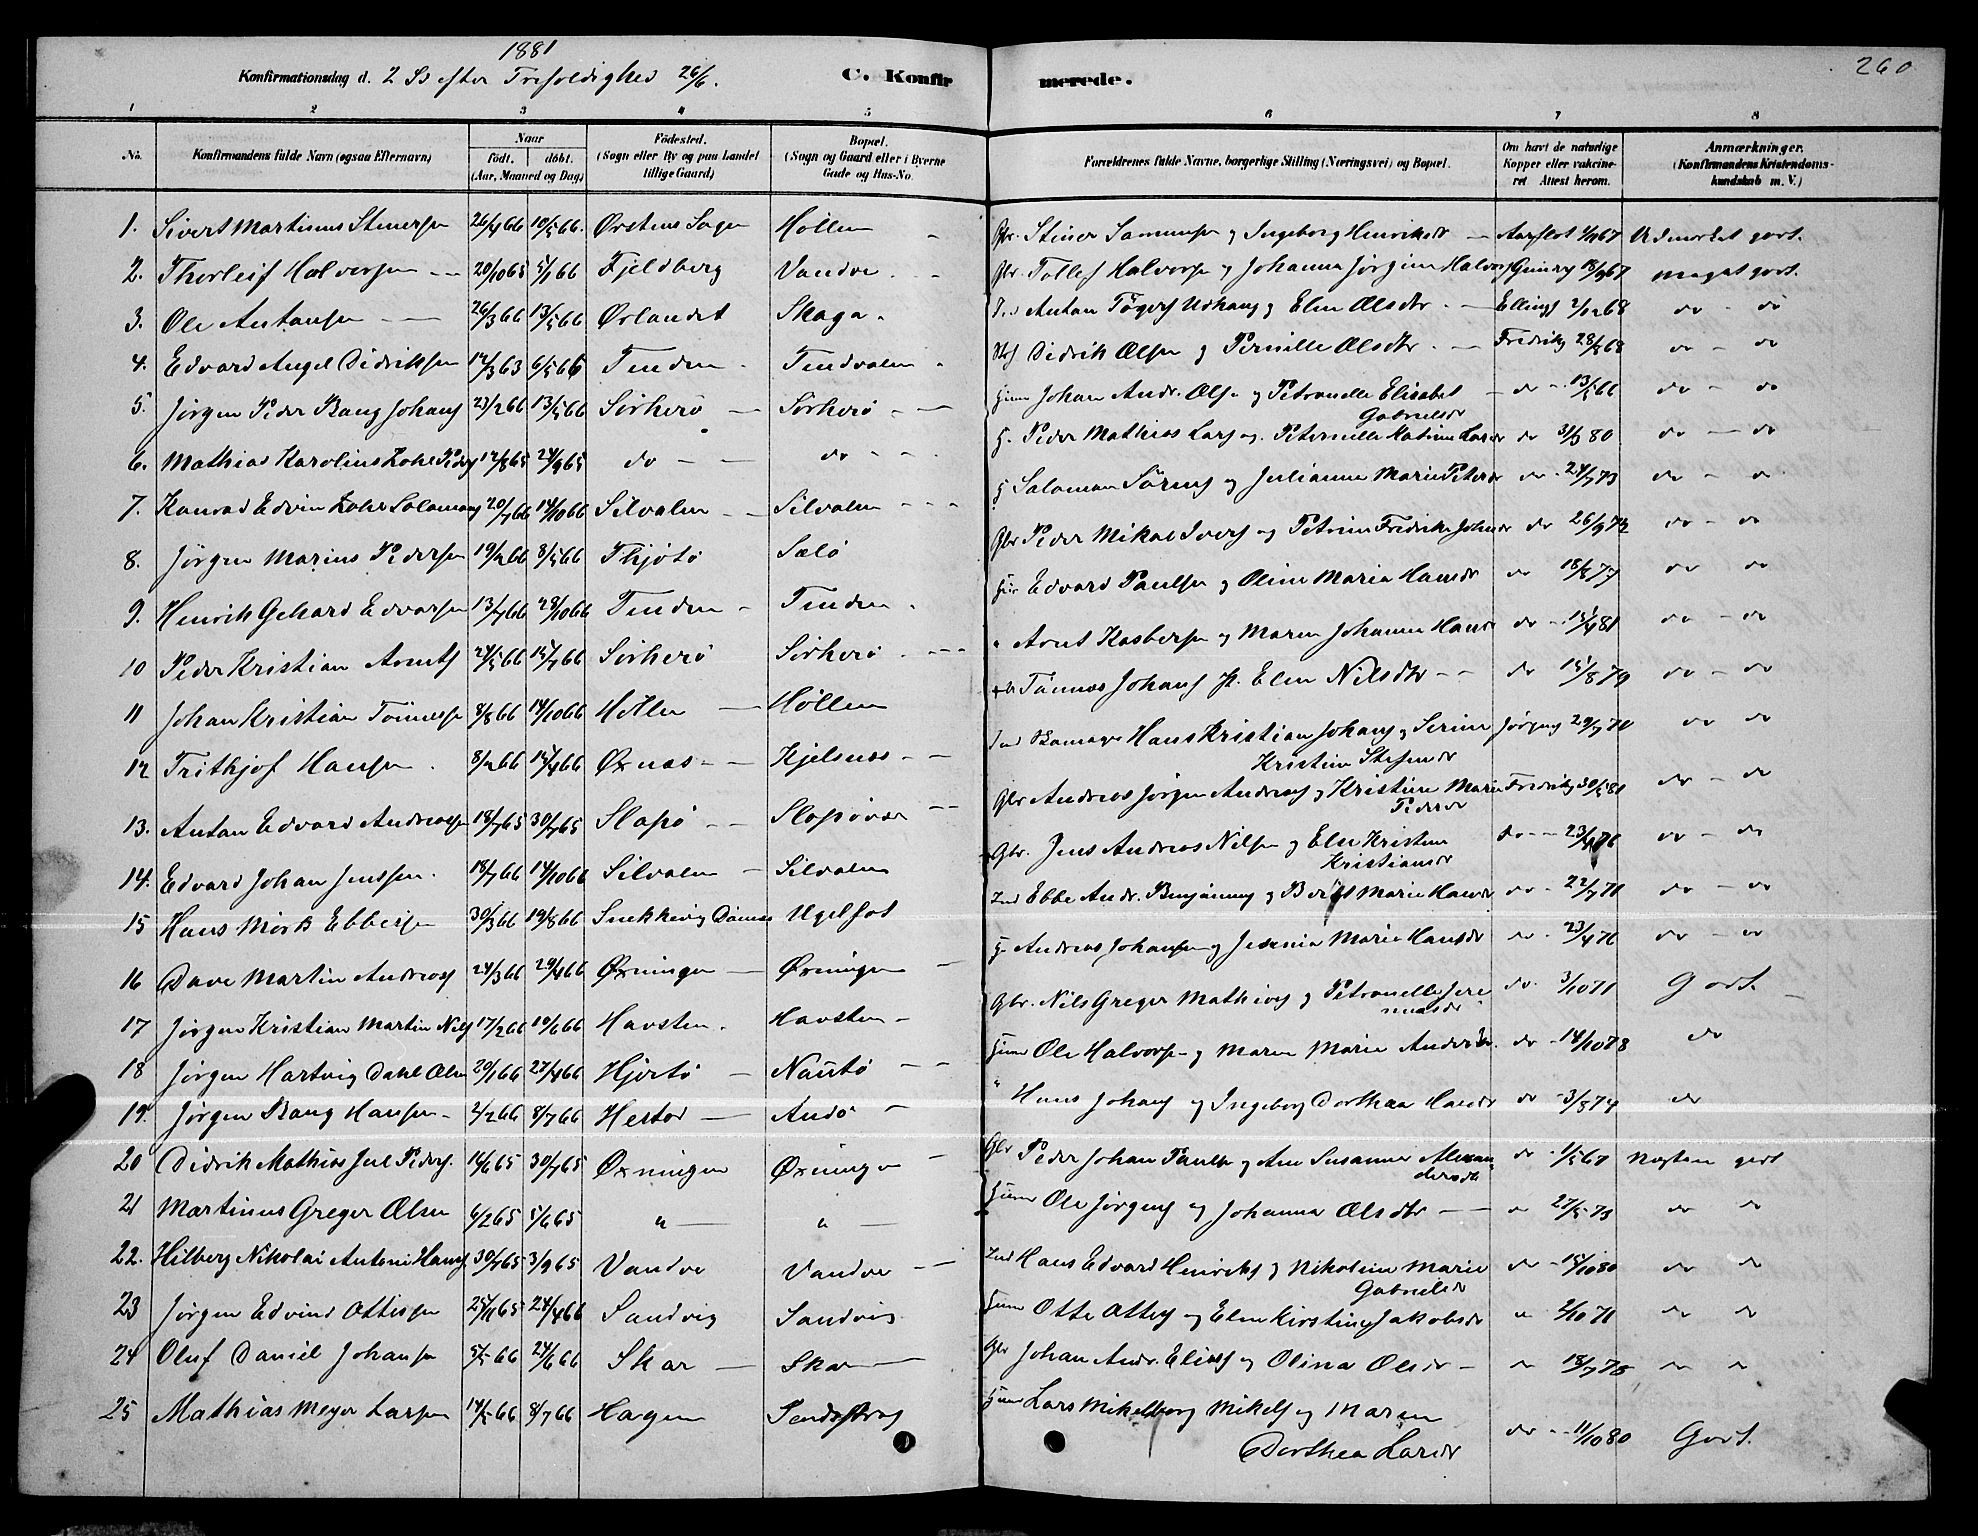 1881
260
Konfirmationsdag d. 2 S efter Trefoldighed 26/6.
C. Konfirmerede.
1 2 3 4 5 6 7 8
No.
Konfirmandens fulde Navn (ogsaa Efternavn)
Naar
födt. döbt.
(Aar, Maaned og Dag)
Födested.
(Sogn eller By og paa Landet
tillige Gaard)
Bopæl.
(Sogn og Gaard eller i Byerne
Gade og Hus-No.
Forældrenes fulde Navne, borgerlige Stilling (Næringsvei) og Bopæl.
Om havt de naturlige
Kopper eller vakcine-
ret Attest herom.
Anmærkninger.
(Konfirmandens Kristendoms-
kundskab m. V.)
1. Sivert Martinus Steinersen 26/4 66 10/5 66. Ørstens Sogn Høllen Gbr. Steiner og Ingeborg Henriksdr 67 Udmerket godt.
2. Thorleif Halvorsen 20/10 65 5/1 66 Fjeldberg Vandve Gbr. Tollef Halvorsen og Johanna Jørgine 18/9 67 meget godt.
3. Ole Antonsen 26/3 66 13/5 66 Ørlandet Skaga Anton og Elen Olsdtr 2/12 68 do - do
4. Edvard Angel Didriksen 17/3 63 6/5 66 Tenden Tendvalen Didrik Olsen og Pernille Olsdtr Fredriks 28/8 68 do - do
5. Jørgen Peder Bang Johans 23/2 66 13/5 66 Sörherö Sörherö Johan Andr. Ols og Petronelle Elisabet Gabrielsdr do 13/5 66 do - do
6. Mathias Karolius Peders 12/8 65 24/9 65 do do Peder Mathias Lars og Peternelle Katrine Larsdr do 31/3 80 do - do
7. Konrad Edvin Salomons 20/7 66 14/10 66 Silvalen Silvalen Salomon Sörens og Julianna Marie Petersdr do 24/7 73 do - do
8. Jørgen Marius Pedersen 19/2 66 8/5 66 Thjøtö Sælö Gbr Peder Mikal Ivers og Petrine Fredrike do 26/9 72 do - do
9. Henrik Gehard Edvarsen 13/7 66 28/10 66 Tenden Tenden Edvard Paulsen og Oline Maria Hansdr do 18/8 77 do do
10 Peder Kristian Arnts 24/5 66 15/7 66 Sörherö Sörherö Arnt Kasbersen og Maren Johanna Hansdr do 15/4 81 do - do
11 Johan Kristian Tönnesen 8/8 66 14/10 66 Høllen Høllen Tönnes Johans Elen Nilsdtr do 15/8 79 do - do
12 Frithjof Hansen 8/2 66 15/4 66 Øxnæs Kjelsnæs Hans Kristian Johans og Serine Kristine Stefensdr Jørgens 29/7 70 do do
13. Antan Edvard Andreassen 18/7 65 30/7 65 Slapö Slapövær Gbr Andreas Jørgen Andreas og Kristine Marie Pedersdr Fredriks 30/5 81 do - do
14. Edvard Johan Jenssen 18/7 66 14/10 66 Silvalen Silvalen Gbr. Jens Andreas Nilsen og Elen Kristine Kristiansdr do 23/4 76 do - do
15 Hans Mørk Ebbesen 30/3 66 19/8 66 Snekkevig Dönnes Ugelfot Ind Ebbe Andr. og Berit Marie Hansdr do 22/7 71 do - do
16 Dave Martin Andreas 24/3 66 29/4 66 Øxningen Øxningen Andreas Johansen og Jesenia Marie Hansdr do 23/4 76 do - do
17 Jørgen Kristian Martin Nils 17/2 66 10/6 66 Havsten Havsten Gbr. Nils Greger Mathias og Petronelle Jeremiasdr do. 3/10 71 Godt.
18 Jørgen Hartvig Dahl Olsen 20/1 66 27/4 66 Hjortö Nautö Ole Halvorsen og Maren Marie Andersdr. do 14/10 78 do
19. Jørgen Bang Hansen 2/2 66 8/7 66 Hestad Andö Hans Johans og Ingeborg Dorthea Hansdr do 3/8 74 do
20 Didrik Mathias Juel Peders. 14/6 65 30/7 65 Øxningen Øxningen Gbr Peder Johan Paulsen og Ane Susanna Alexandersdtr do 1/5 67 Næsten godt
21 Martinus Greger Olsen 6/2 65 5/6 65 " " Ole Jørgens og Johanna Olsdtr 27/5 73 do do
22. Hilberg Nikolai Antoni Hans 30/7 65 3/9 65 Vandve Vandve Ind Hans Edvard Henriks og Nikoline Marie Gabrielsdr do 15/10 80 do do
23 Jørgen Edvind Ottesen 25/11 65 24/4 66 Sandvig Sandvig Otte Ottes og Elen Kirstine Jakobsdr 2/10 71 do do
24 Oluf Daniel Johansen 5/5 66 24/6 66 Skar Skar Gbr Johan Andr. Elias og Olina Olsdr 18/7 75
25 Mathias Meyer Larsen 14/5 66 8/7 66 Hagen Lars Mikelborg Mikels og Maren Dorthea Larsdr do 11/10 80 Godt.